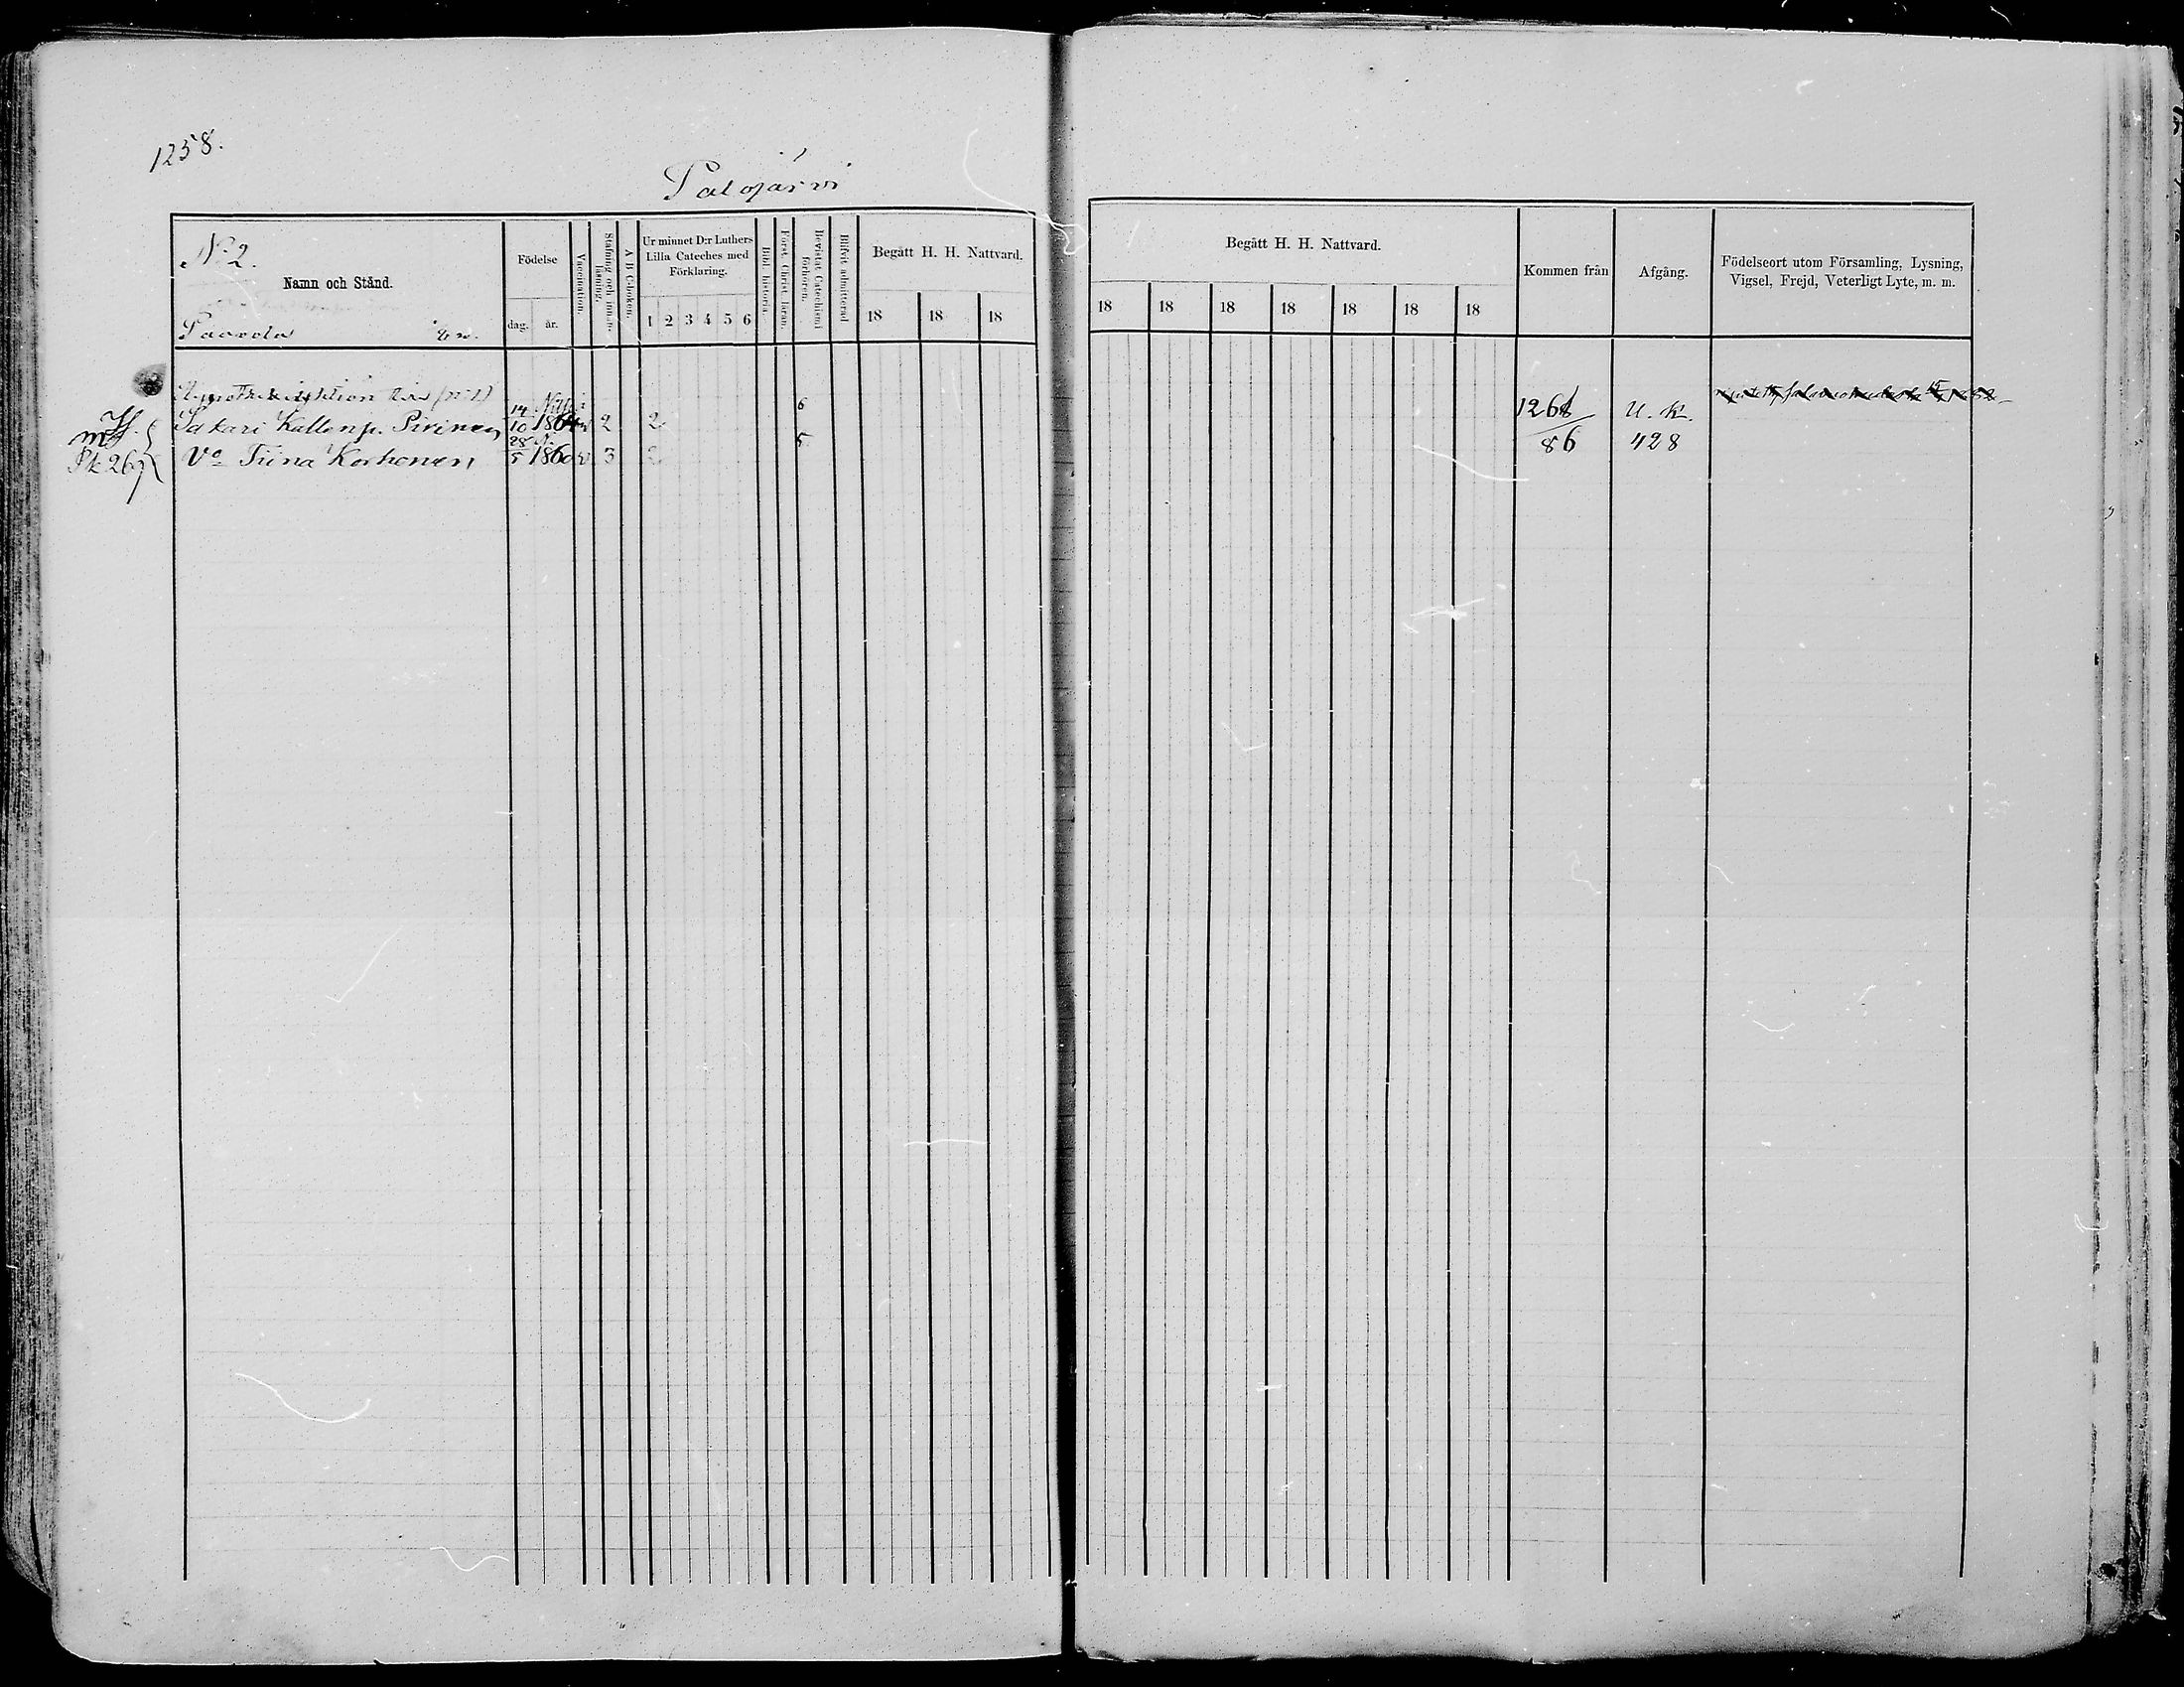 1258.
Palojärvi
No 2.
Namn och Stånd.
Paavola
Födelse
dag. år.
Vaccination.
Stafning och innan-läsning.
A B C-boken.
Ur minnet D:r Luthers Lilla Cateches med Förklaring.
1 2 3 4 5 6
Bibl. historia.
Först. Christ. läran.
Bevistat Catechismi förhören.
Blifvit admitterad
Begått H. H. Nattvard.
18 18 18
Begått H. H. Nattvard.
18 18 18 18 18 18 18
Kommen från
Afgång.
Födelseort utom Församling, Lysning, Vigsel, Frejd, Veterligt Lyte, m. m.
Sakari Kallenp. Pirinen 14/10 1864 v 2 2 6 U. K.
Vo Tiina Korhonen 28/5 1860 v 3 2 5 86 428
Pk 267